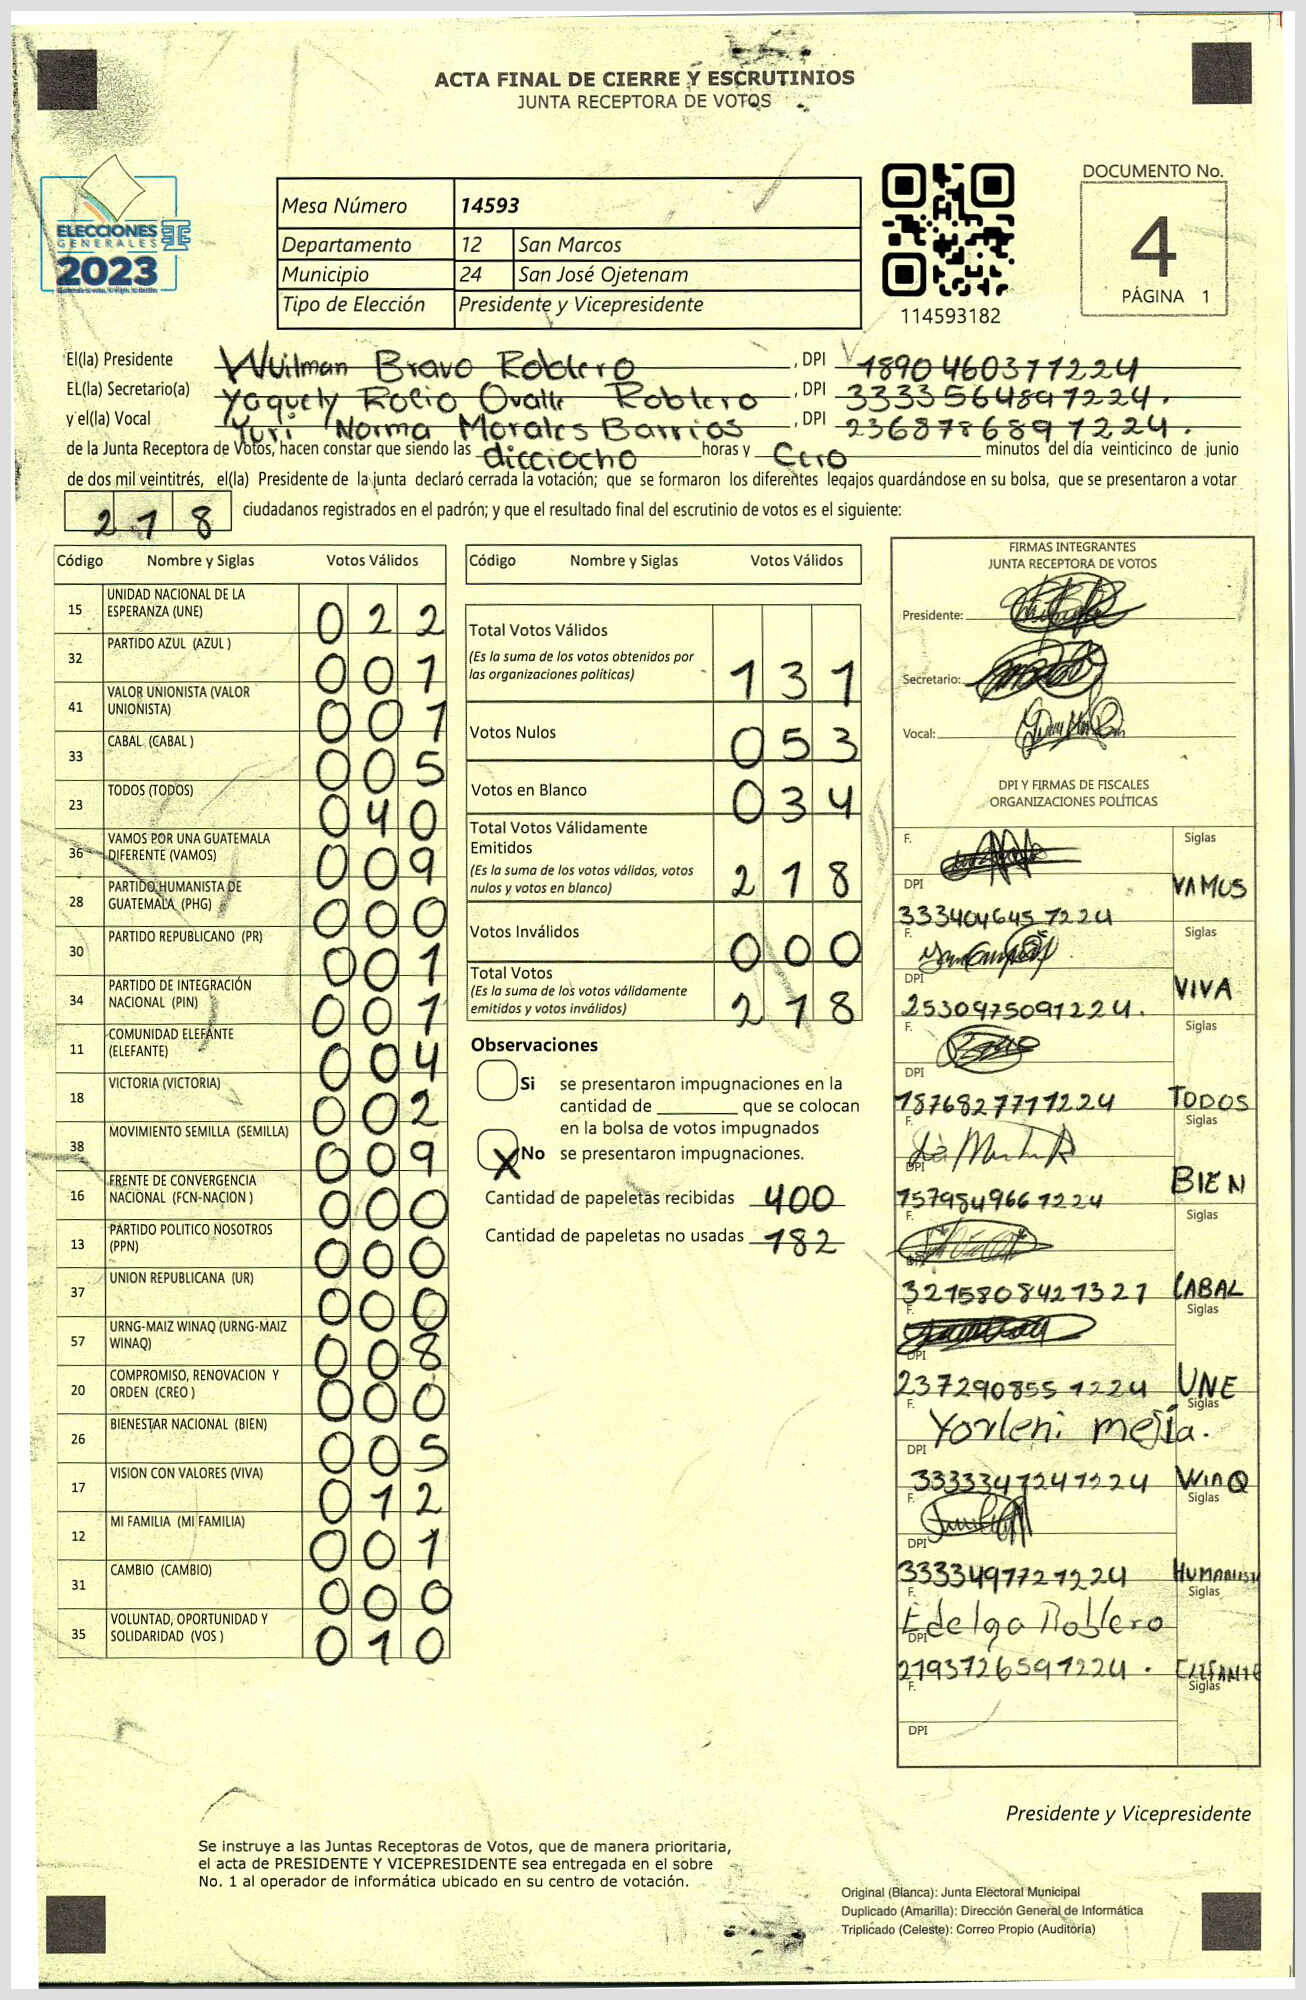 ACTA FINAL DE CIERRE Y ESCRUTINIOS
JUNTA RECEPTORA DE VOTOS
ELECCIONES
GENERALES
2023
Mesa Número 14593
Departamento 12 San Marcos
Municipio 24 San José Ojetenam
Tipo de Elección Presidente y Vicepresidente
114593182
DOCUMENTO No.
4
PÁGINA 1
El(la) Presidente Wuilman Bravo Roblero, DPI 1890460371224
EL(la) Secretario(a) Yaquely Rocio Ovalle Roblero, DPI 3333564897224.
y el(la) Vocal Yuri Norma Morales Barrios, DPI 2368786897224.
de la Junta Receptora de Votos, hacen constar que siendo las dicciocho horas y Cero minutos del día veinticinco de junio
de dos mil veintitrés, el(la) Presidente de la junta declaró cerrada la votación; que se formaron los diferentes legajos guardándose en su bolsa, que se presentaron a votar
218 ciudadanos registrados en el padrón; y que el resultado final del escrutinio de votos es el siguiente:
Código Nombre y Siglas Votos Válidos
15 UNIDAD NACIONAL DE LA ESPERANZA (UNE) 022
32 PARTIDO AZUL (AZUL ) 001
41 VALOR UNIONISTA (VALOR UNIONISTA) 001
33 CABAL (CABAL ) 005
23 TODOS (TODOS) 040
36 VAMOS POR UNA GUATEMALA DIFERENTE (VAMOS) 009
28 PARTIDO HUMANISTA DE GUATEMALA (PHG) 000
30 PARTIDO REPUBLICANO (PR) 001
34 PARTIDO DE INTEGRACIÓN NACIONAL (PIN) 001
11 COMUNIDAD ELEFANTE (ELEFANTE) 004
18 VICTORIA (VICTORIA) 002
38 MOVIMIENTO SEMILLA (SEMILLA) 009
16 FRENTE DE CONVERGENCIA NACIONAL (FCN-NACION ) 000
13 PARTIDO POLITICO NOSOTROS (PPN) 000
37 UNION REPUBLICANA (UR) 000
57 URNG-MAIZ WINAQ (URNG-MAIZ WINAQ) 008
20 COMPROMISO, RENOVACION Y ORDEN (CREO ) 000
26 BIENESTAR NACIONAL (BIEN) 005
17 VISION CON VALORES (VIVA) 012
12 MI FAMILIA (MI FAMILIA) 001
31 CAMBIO (CAMBIO) 000
35 VOLUNTAD, OPORTUNIDAD Y SOLIDARIDAD (VOS ) 010
Código Nombre y Siglas Votos Válidos
Total Votos Válidos 131
(Es la suma de los votos obtenidos por
las organizaciones políticas)
Votos Nulos 053
Votos en Blanco 034
Total Votos Válidamente
Emitidos 218
(Es la suma de los votos válidos, votos
nulos y votos en blanco)
Votos Inválidos 000
Total Votos 218
(Es la suma de los votos válidamente
emitidos y votos inválidos)
Observaciones
Si se presentaron impugnaciones en la
cantidad de ________ que se colocan
en la bolsa de votos impugnados
X No se presentaron impugnaciones.
Cantidad de papeletas recibidas 400
Cantidad de papeletas no usadas 182
FIRMAS INTEGRANTES
JUNTA RECEPTORA DE VOTOS
Presidente:
Secretario:
Vocal:
DPI Y FIRMAS DE FISCALES
ORGANIZACIONES POLÍTICAS
F. Siglas
DPI VAMOS
3334046457224
F. Siglas
DPI VIVA
2530975091224.
F. Siglas
DPI
1876827711224 TODOS
F. Siglas
DPI BIEN
1579849661224
F. Siglas
DPI
3215808421321 CABAL
F. Siglas
DPI
2372908551224 UNE
F. Siglas
Yorleni mejía.
DPI
3333347241224 WINQ
F. Siglas
DPI
3333497721224 HUMANISTA
F. Siglas
Edelga Roblero
DPI
2193726591224. ELEFANTE
F. Siglas
DPI
Presidente y Vicepresidente
Se instruye a las Juntas Receptoras de Votos, que de manera prioritaria,
el acta de PRESIDENTE Y VICEPRESIDENTE sea entregada en el sobre
No. 1 al operador de informática ubicado en su centro de votación.
Original (Blanca): Junta Electoral Municipal
Duplicado (Amarilla): Dirección General de Informática
Triplicado (Celeste): Correo Propio (Auditoría)